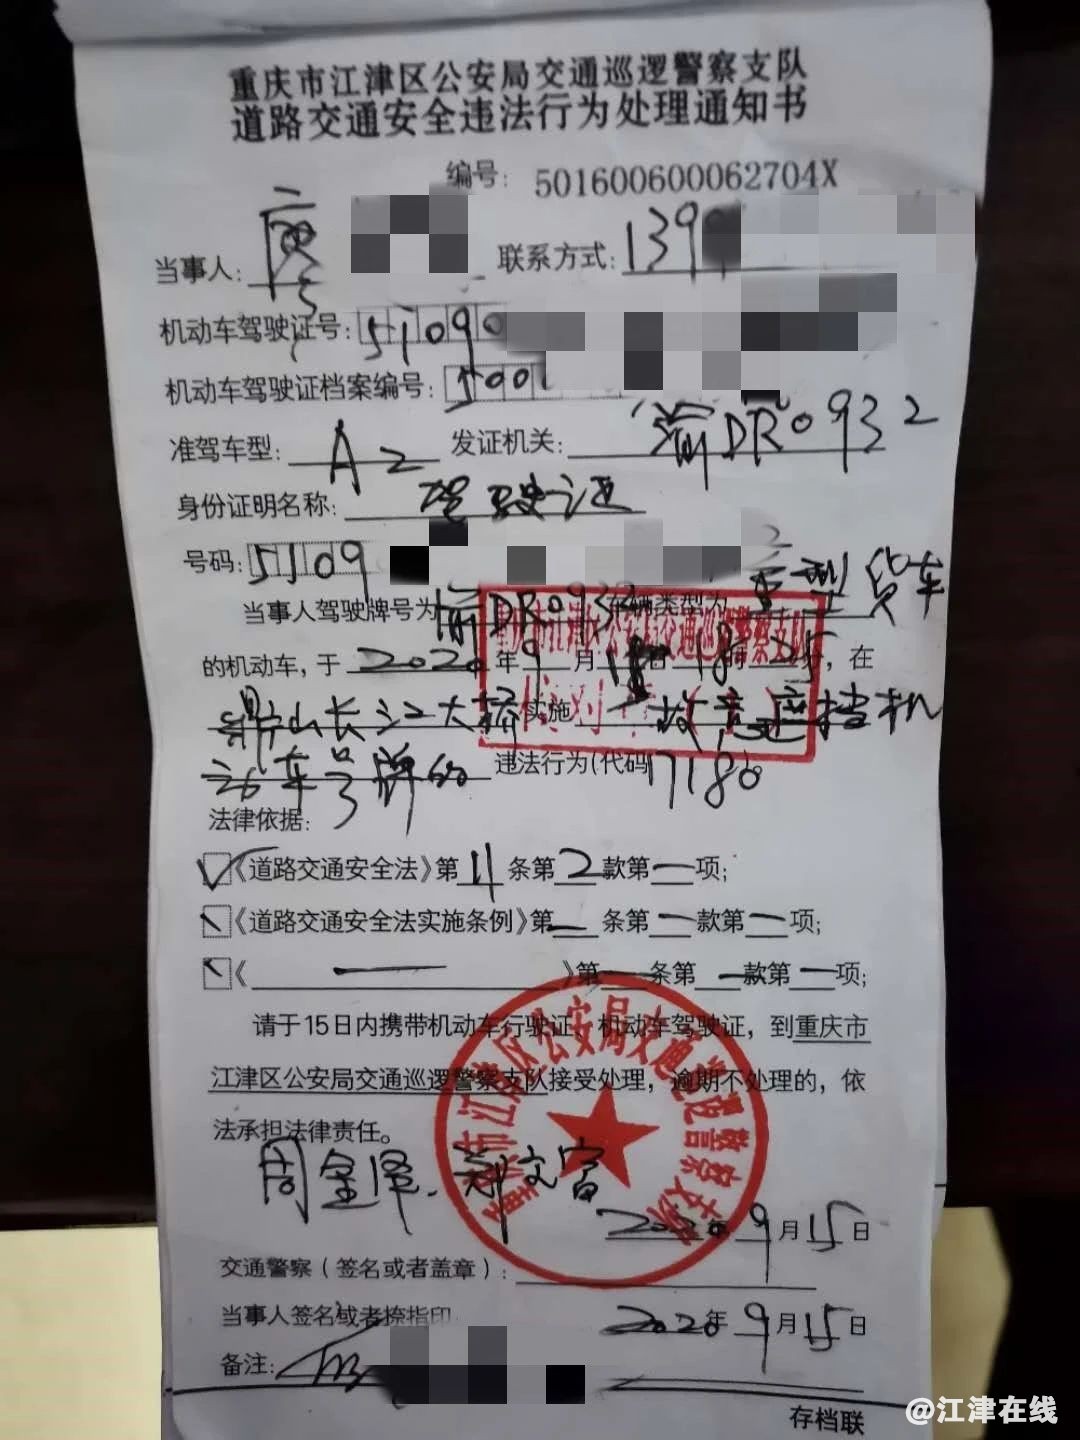 重庆市江津区公安局交通巡逻警察支队
道路交通安全违法行为处理通知书
编号: 501600600062704X
当事人: 联系方式: 139
机动车驾驶证号: 5109
机动车驾驶证档案编号: 500
准驾车型: A2 发证机关: 渝DR0932
身份证明名称: 驾驶证
号码: 5109
当事人驾驶牌号为 渝DR0932 车辆类型为 重型货车
的机动车, 于 2020 年 9 月 日 18 时 25 分, 在
鼎山长江大桥 实施 故意遮挡机
动车号牌的 违法行为(代码 71180
法律依据:
☑《道路交通安全法》第 11 条第 2 款第 一 项;
《道路交通安全法实施条例》第 一 条第 一 款第 一 项;
《 — 》第 一 条第 一 款第 一 项;
请于15日内携带机动车行驶证、机动车驾驶证, 到重庆市
江津区公安局交通巡逻警察支队接受处理, 逾期不处理的, 依
法承担法律责任。
周金泽. 郝文富
2020年 9 月 15 日
交通警察 (签名或者盖章) :
当事人签名或者捺指印 2020年 9 月 15 日
备注:
存档联
@江津在线